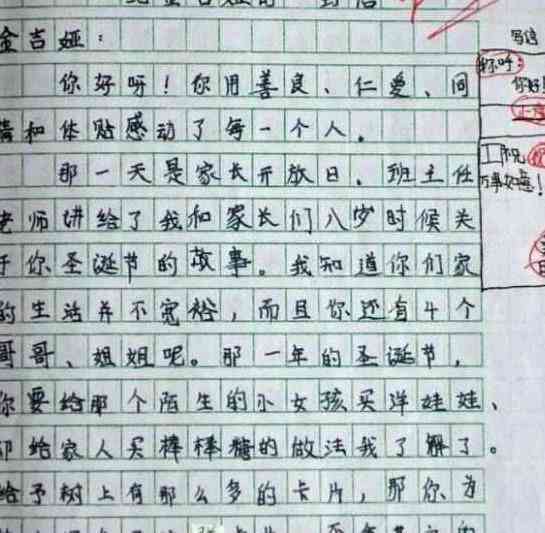 给金吉娅的一封信
金吉娅：
你好呀！你用善良、仁爱、同
情和体贴感动了每一个人。
那一天是家长开放日，班主任
老师讲给了我和家长们八岁时候关
于你圣诞节的故事。我知道你们家
的生活并不宽裕，而且你还有4个
哥哥、姐姐呢。那一年的圣诞节，
你要给那个陌生的小女孩买洋娃娃、
却给家人买棒棒糖的做法我了解了。
给予树上有那么多的卡片，那你为
写信
称呼：
你好！
祝
万事如意！